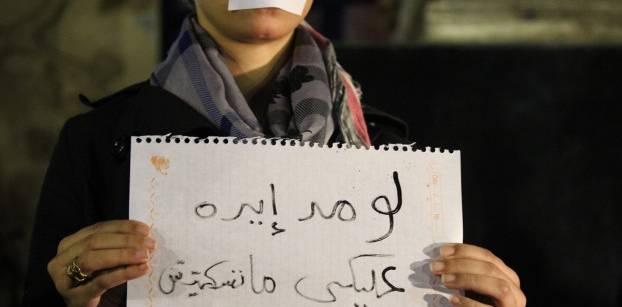 لو مد إيده
عليكي ماتسكتيش